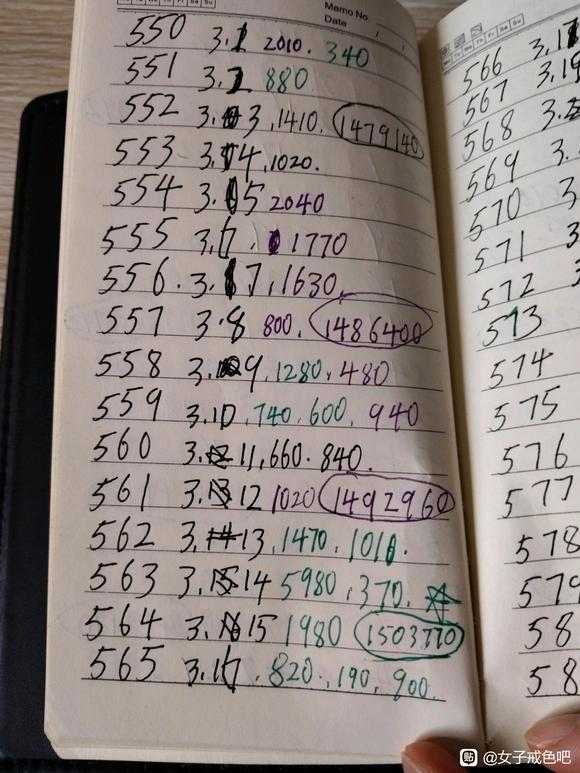 Memo No.
Date / /
550 3.1 2010. 340
551 3.2 880
552 3.3, 1410. 1479140
553 3.4, 1020.
554 3.5 2040
555 3. . 1770
556. 3.7, 1630.
557 3.8 800. 1486400
558 3.9, 1280, 480
559 3.10, 740, 600, 940
560 3.11, 660. 840.
561 3.12 1020 1492960
562 3.13, 1470, 1010.
563 3.14 5980, 370.
564 3.15 1980 1503770
565 3. . 820., 190, 900.
566 3.1
567 3.19
568 3.
569 3.
570 3
571 3
572 3
573
574
575
576
577
578
579
58
58
贴 @女子戒色吧